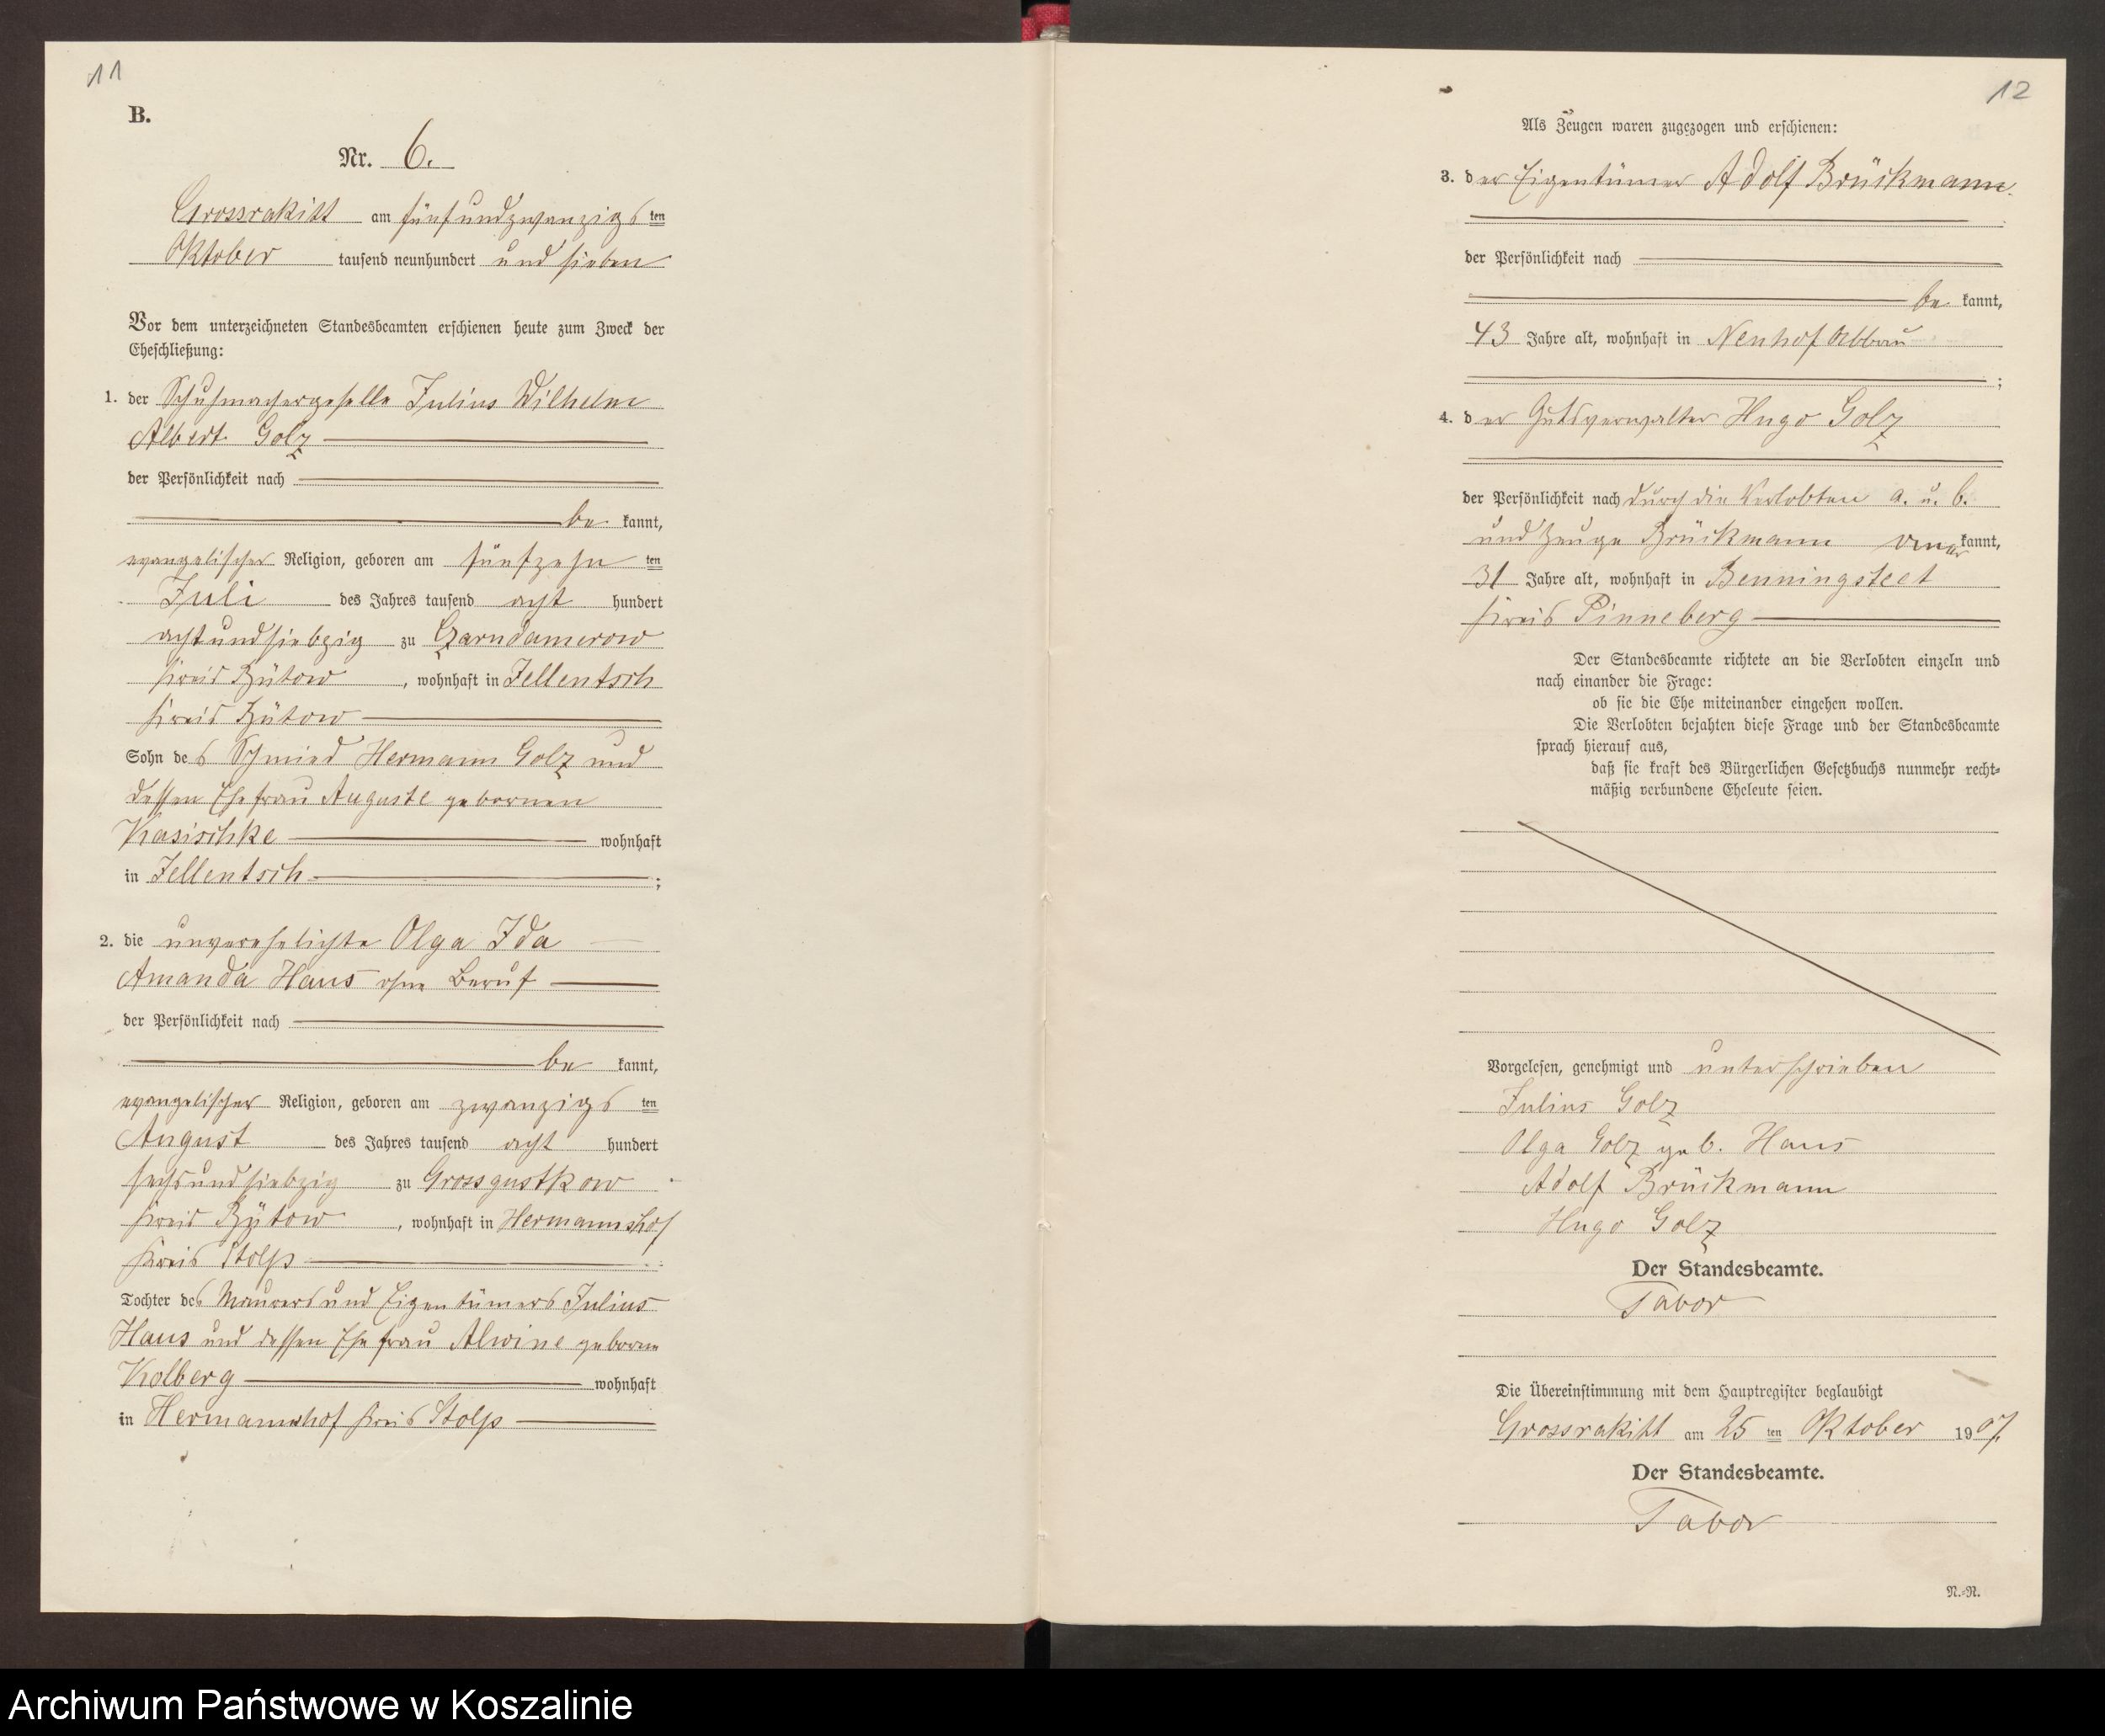 11
B.
Nr. 6.
Grossrakitt am fünfundzwanzigsten
Oktober tausend neunhundert und sieben
Vor dem unterzeichneten Standesbeamten erschienen heute zum Zweck der
Eheschließung:
1. der Schuhmachergeselle Julius Wilhelm
Albert Golz
der Persönlichkeit nach
be kannt,
evangelischer Religion, geboren am fünfzehn ten
Juli des Jahres tausend acht hundert
achtundsiebzig zu Czarndamerow
Kreis Bütow, wohnhaft in Jellentsch
Kreis Bütow
Sohn des Schmied Hermann Golz und
dessen Ehefrau Auguste gebornen
Kasischke wohnhaft
in Jellentsch ;
2. die unverehelichte Olga Ida
Amanda Haus ohne Beruf
der Persönlichkeit nach
be kannt,
evangelischer Religion, geboren am zwanzigs ten
August des Jahres tausend acht hundert
sechsundsiebzig zu Grossgustkow
Kreis Bütow, wohnhaft in Hermannshof
Kreis Stolp
Tochter des Maurers und Eigentümers Julius
Haus und dessen Ehefrau Alwine geborne
Kolberg wohnhaft
in Hermannshof Kreis Stolp
12
Als Zeugen waren zugezogen und erschienen:
3. der Eigentümer Adolf Brückmann.
der Persönlichkeit nach
be kannt,
43 Jahre alt, wohnhaft in Neuhof Abbau
;
4. der Gutsverwalter Hugo Golz
der Persönlichkeit nach durch die Verlobten a. u. b.
und Zeuge Brückmann kannt,
31 Jahre alt, wohnhaft in Benningsteet
Kreis Pinneberg
Der Standesbeamte richtete an die Verlobten einzeln und
nach einander die Frage:
ob sie die Ehe miteinander eingehen wollen.
Die Verlobten bejahten diese Frage und der Standesbeamte
sprach hierauf aus,
daß sie kraft des Bürgerlichen Gesetzbuchs nunmehr recht-
mäßig verbundene Eheleute seien.
Vorgelesen, genehmigt und unterschrieben
Julius Golz
Olga Golz geb. Haus
Adolf Brückmann
Hugo Golz
Der Standesbeamte.
Tabor
Die Übereinstimmung mit dem Hauptregister beglaubigt
Grossrakitt am 25 ten Oktober 1907.
Der Standesbeamte.
Tabor
N.-N.
Archiwum Państwowe w Koszalinie